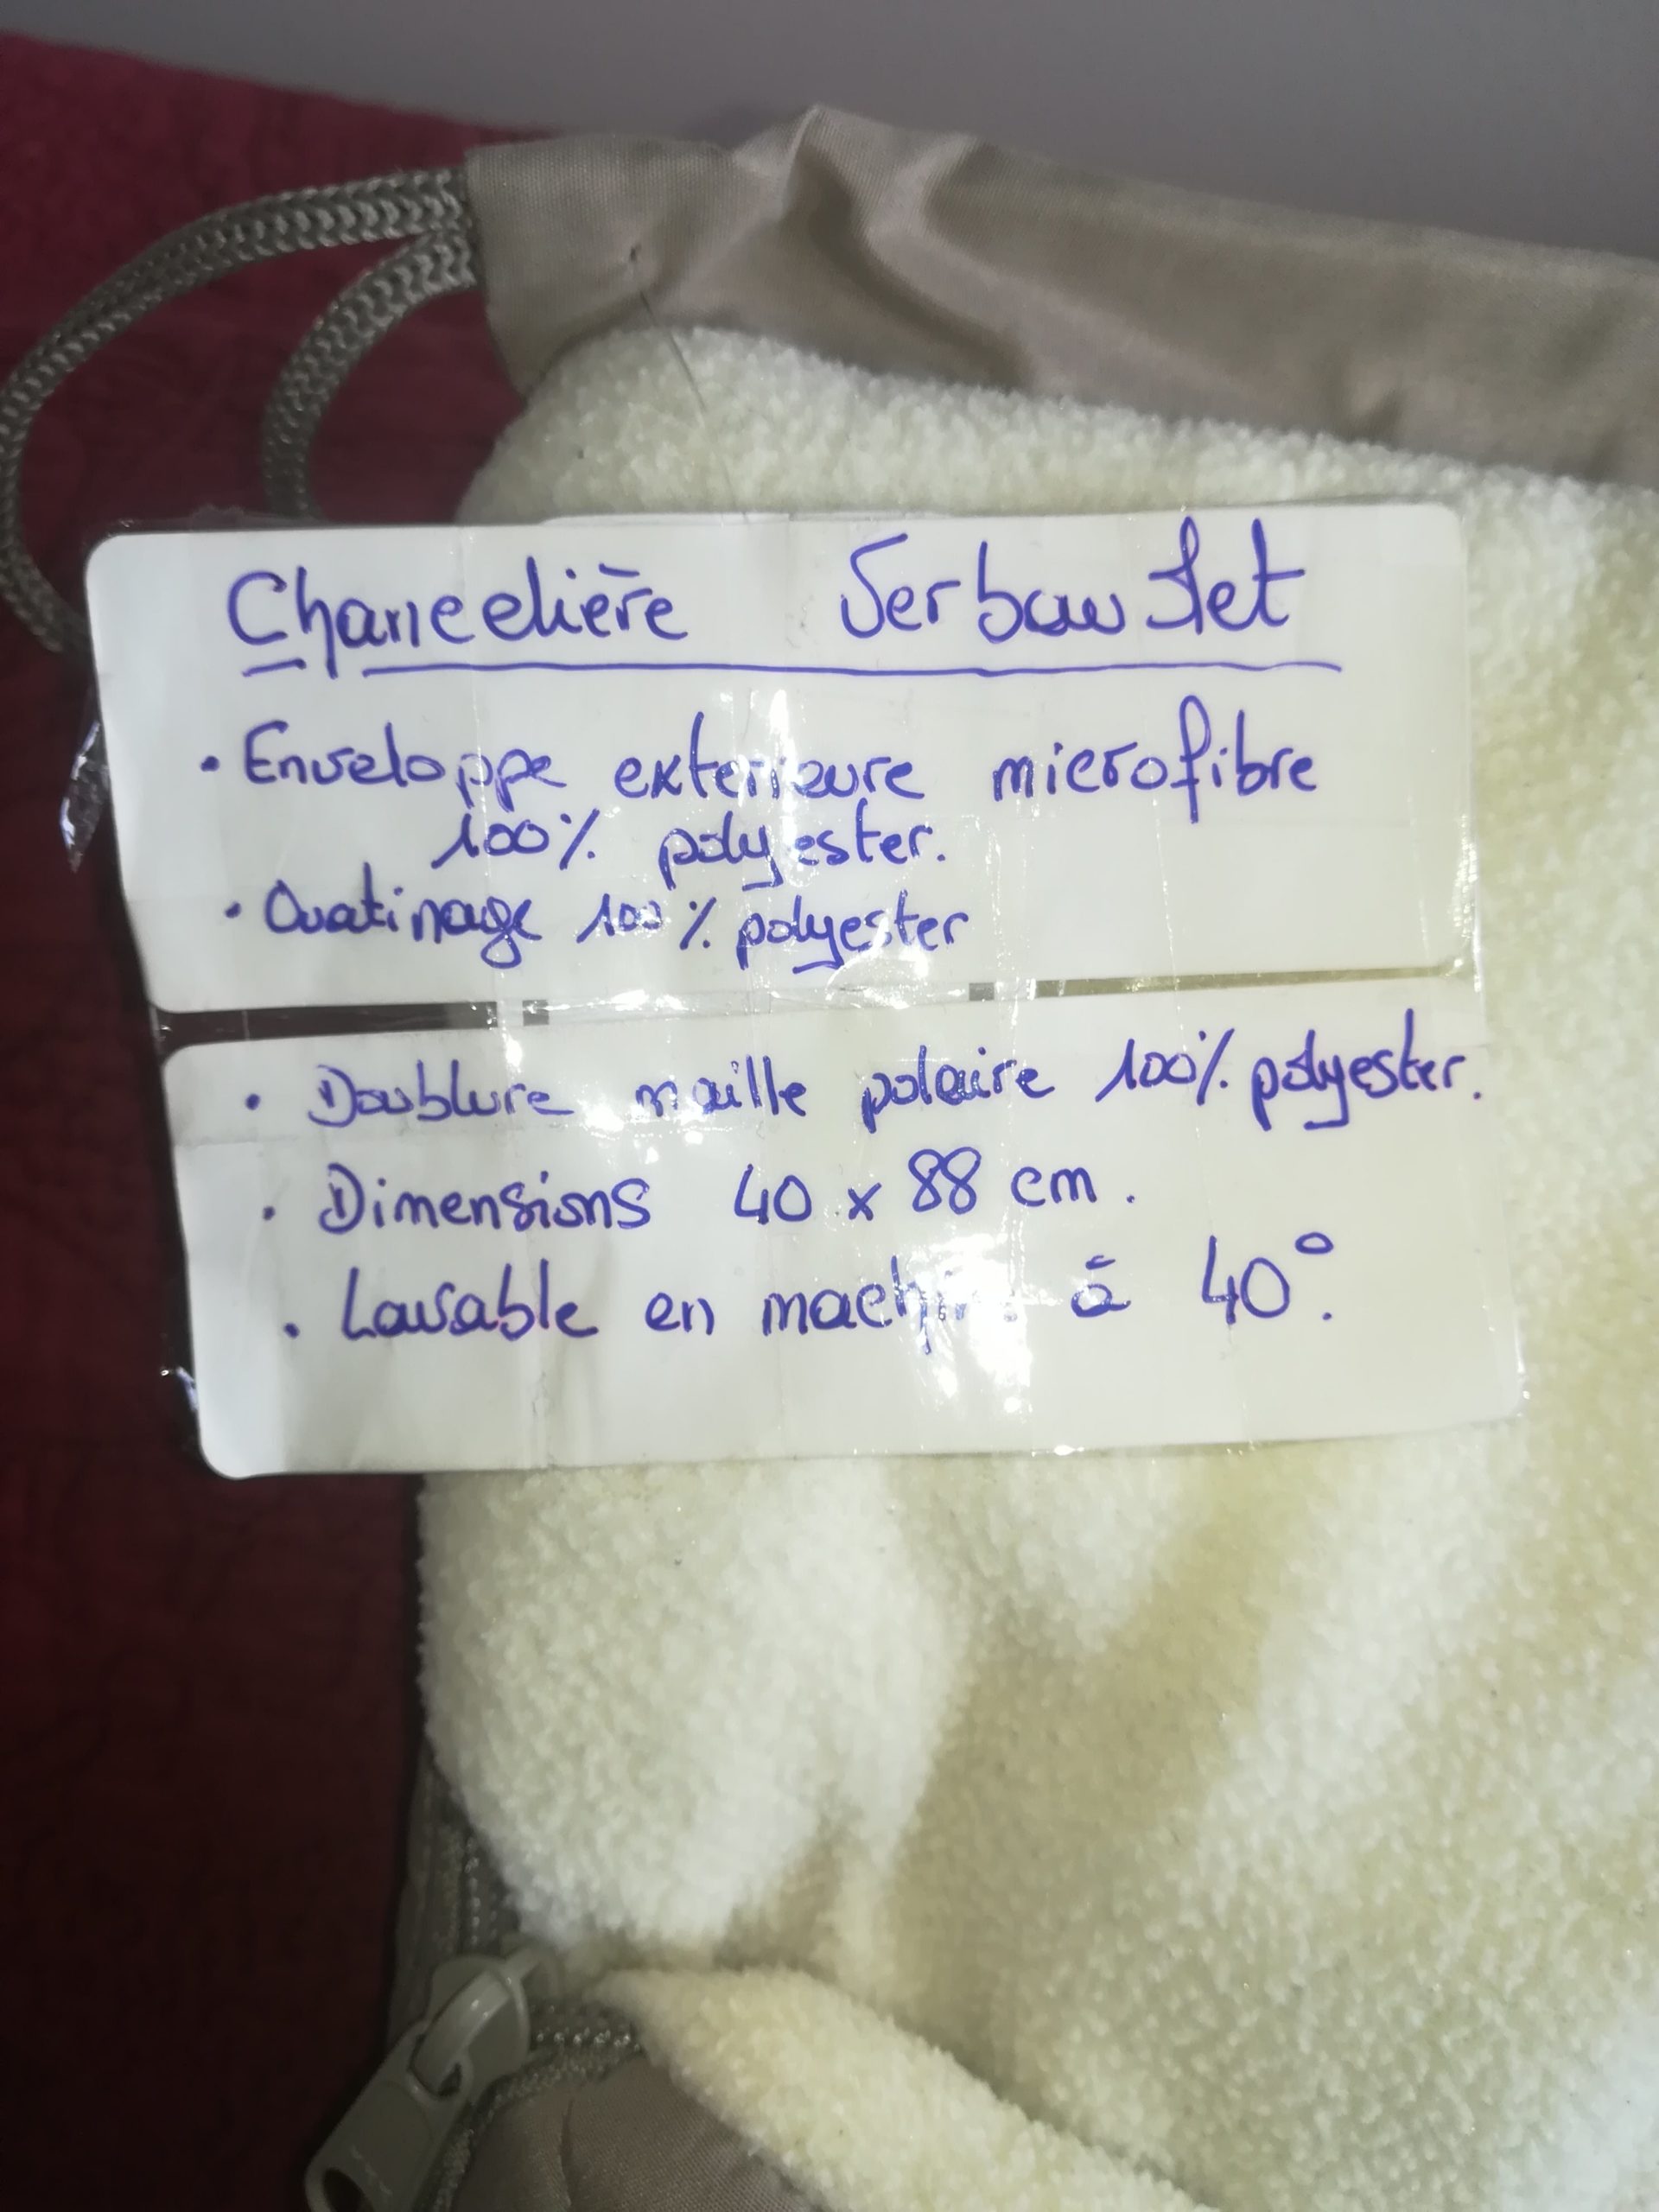 Chancelière Verbaudet
• Enveloppe exterieure microfibre
100% polyester.
• Ouatinage 100% polyester
• Doublure maille polaire 100% polyester.
• Dimensions 40 x 88 cm.
• Lavable en machine à 40°.